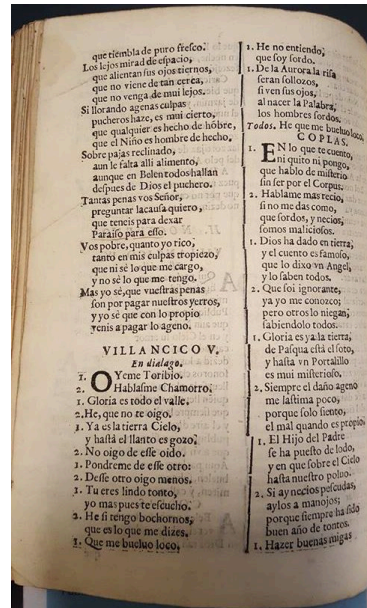 que tiembla de puro fresco.
Los lejos mirad de espacio,
que alientan sus ojos tiernos,
que no viene de tan cerca,
que no venga de mui lejos.
Si llorando agenas culpas
pucheros haze, es mui cierto,
que qualquier es hecho de hõbre,
que el Niño es hombre de hecho.
Sobre pajas reclinado,
aun le falta alli alimento,
aunque en Belen todos hallan
despues de Dios el puchero.
Tantas penas vos Señor,
preguntar la causa quiero,
que teneis para dexar
Paraiso para esso.
Vos pobre, quanto yo rico,
tanto en mis culpas tropiezo,
que ni sè lo que me cargo,
y no sè lo que me tengo.
Mas yo sè, que vuestras penas
son por pagar nuestros yerros,
y yo sè que con lo propio
venis a pagar lo ageno.
VILLANCICO V.
En dialogo.
1. OYeme Toribio.
2. Hablasme Chamorro.
1. Gloria es todo el valle.
2. He, que no te oigo.
1. Ya es la tierra Cielo,
y hasta el llanto es gozo.
2. No oigo de esse oido.
1. Pondreme de esse otro:
2. Desse otro oigo menos.
1. Tu eres lindo tonto,
yo mas pues te escucho.
2. He si tengo bochornos,
que es lo que me dizes.
1. Que me bueluo loco.
1. He no entiendo,
que soy sordo.
1. De la Aurora la risa
seràn sollozos,
si ven sus ojos,
al nacer la Palabra,
los hombres sordos.
Todos. He que me bueluo loco.
COPLAS.
1. EN lo que te cuento,
ni quito ni pongo,
que hablo de misterio
sin ser por el Corpus.
2. Hablame mas recio,
si no me das como,
que sordos, y necios,
somos maliciosos.
1. Dios ha dado en tierra,
y el cuento es famoso,
que lo dixo vn Angel,
y lo saben todos.
2. Que soi ignorante,
ya yo me conozco;
pero otros lo niegan,
sabiendolo todos.
1. Gloria es ya la tierra,
de Pasqua està el soto,
y hasta vn Portalillo
es mui misterioso.
2. Siempre el daño ageno
me lastima poco,
porque solo siento,
el mal quando es propio.
1. El Hijo del Padre
se ha puesto de lodo,
y en que sobre el Cielo
hasta nuestro poluo.
2. Si ay necios pescudas,
aylos a manojos;
porque siempre ha sido
buen año de tontos.
1. Hazer buenas migas